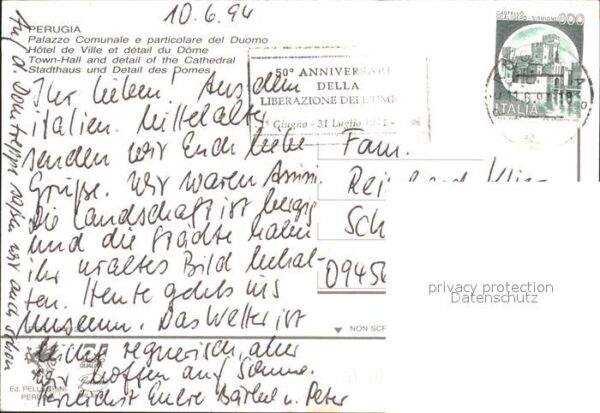 10.6.94
PERUGIA
Palazzo Comunale e particolare del Duomo
Hôtel de Ville et détail du Dôme
Town-Hall and detail of the Cathedral
Stadthaus und Detail des Domes
CASTELLO
600
ITALIA
50° ANNIVERSARI
DELLA
LIBERAZIONE DEI
Giugno - 31 Luglio
Ihr Lieben! Aus dem
italien. Mittelalter
senden wir Euch liebe
Grüße. Wir waren Assisi.
Die Landschaft ist bergig
und die Städte haben
ihr uraltes Bild behal-
ten. Heute gehts ins
Museum. Das Wetter ist
leicht regnerisch, aber
wir hoffen auf Sonne.
Herzlichst Eure Bärbel u. Peter
Auf d. Domtreppe saßen wir auch schon
Fam.
Sch
09456
privacy protection
Datenschutz
NON SCR
Ed.
PER